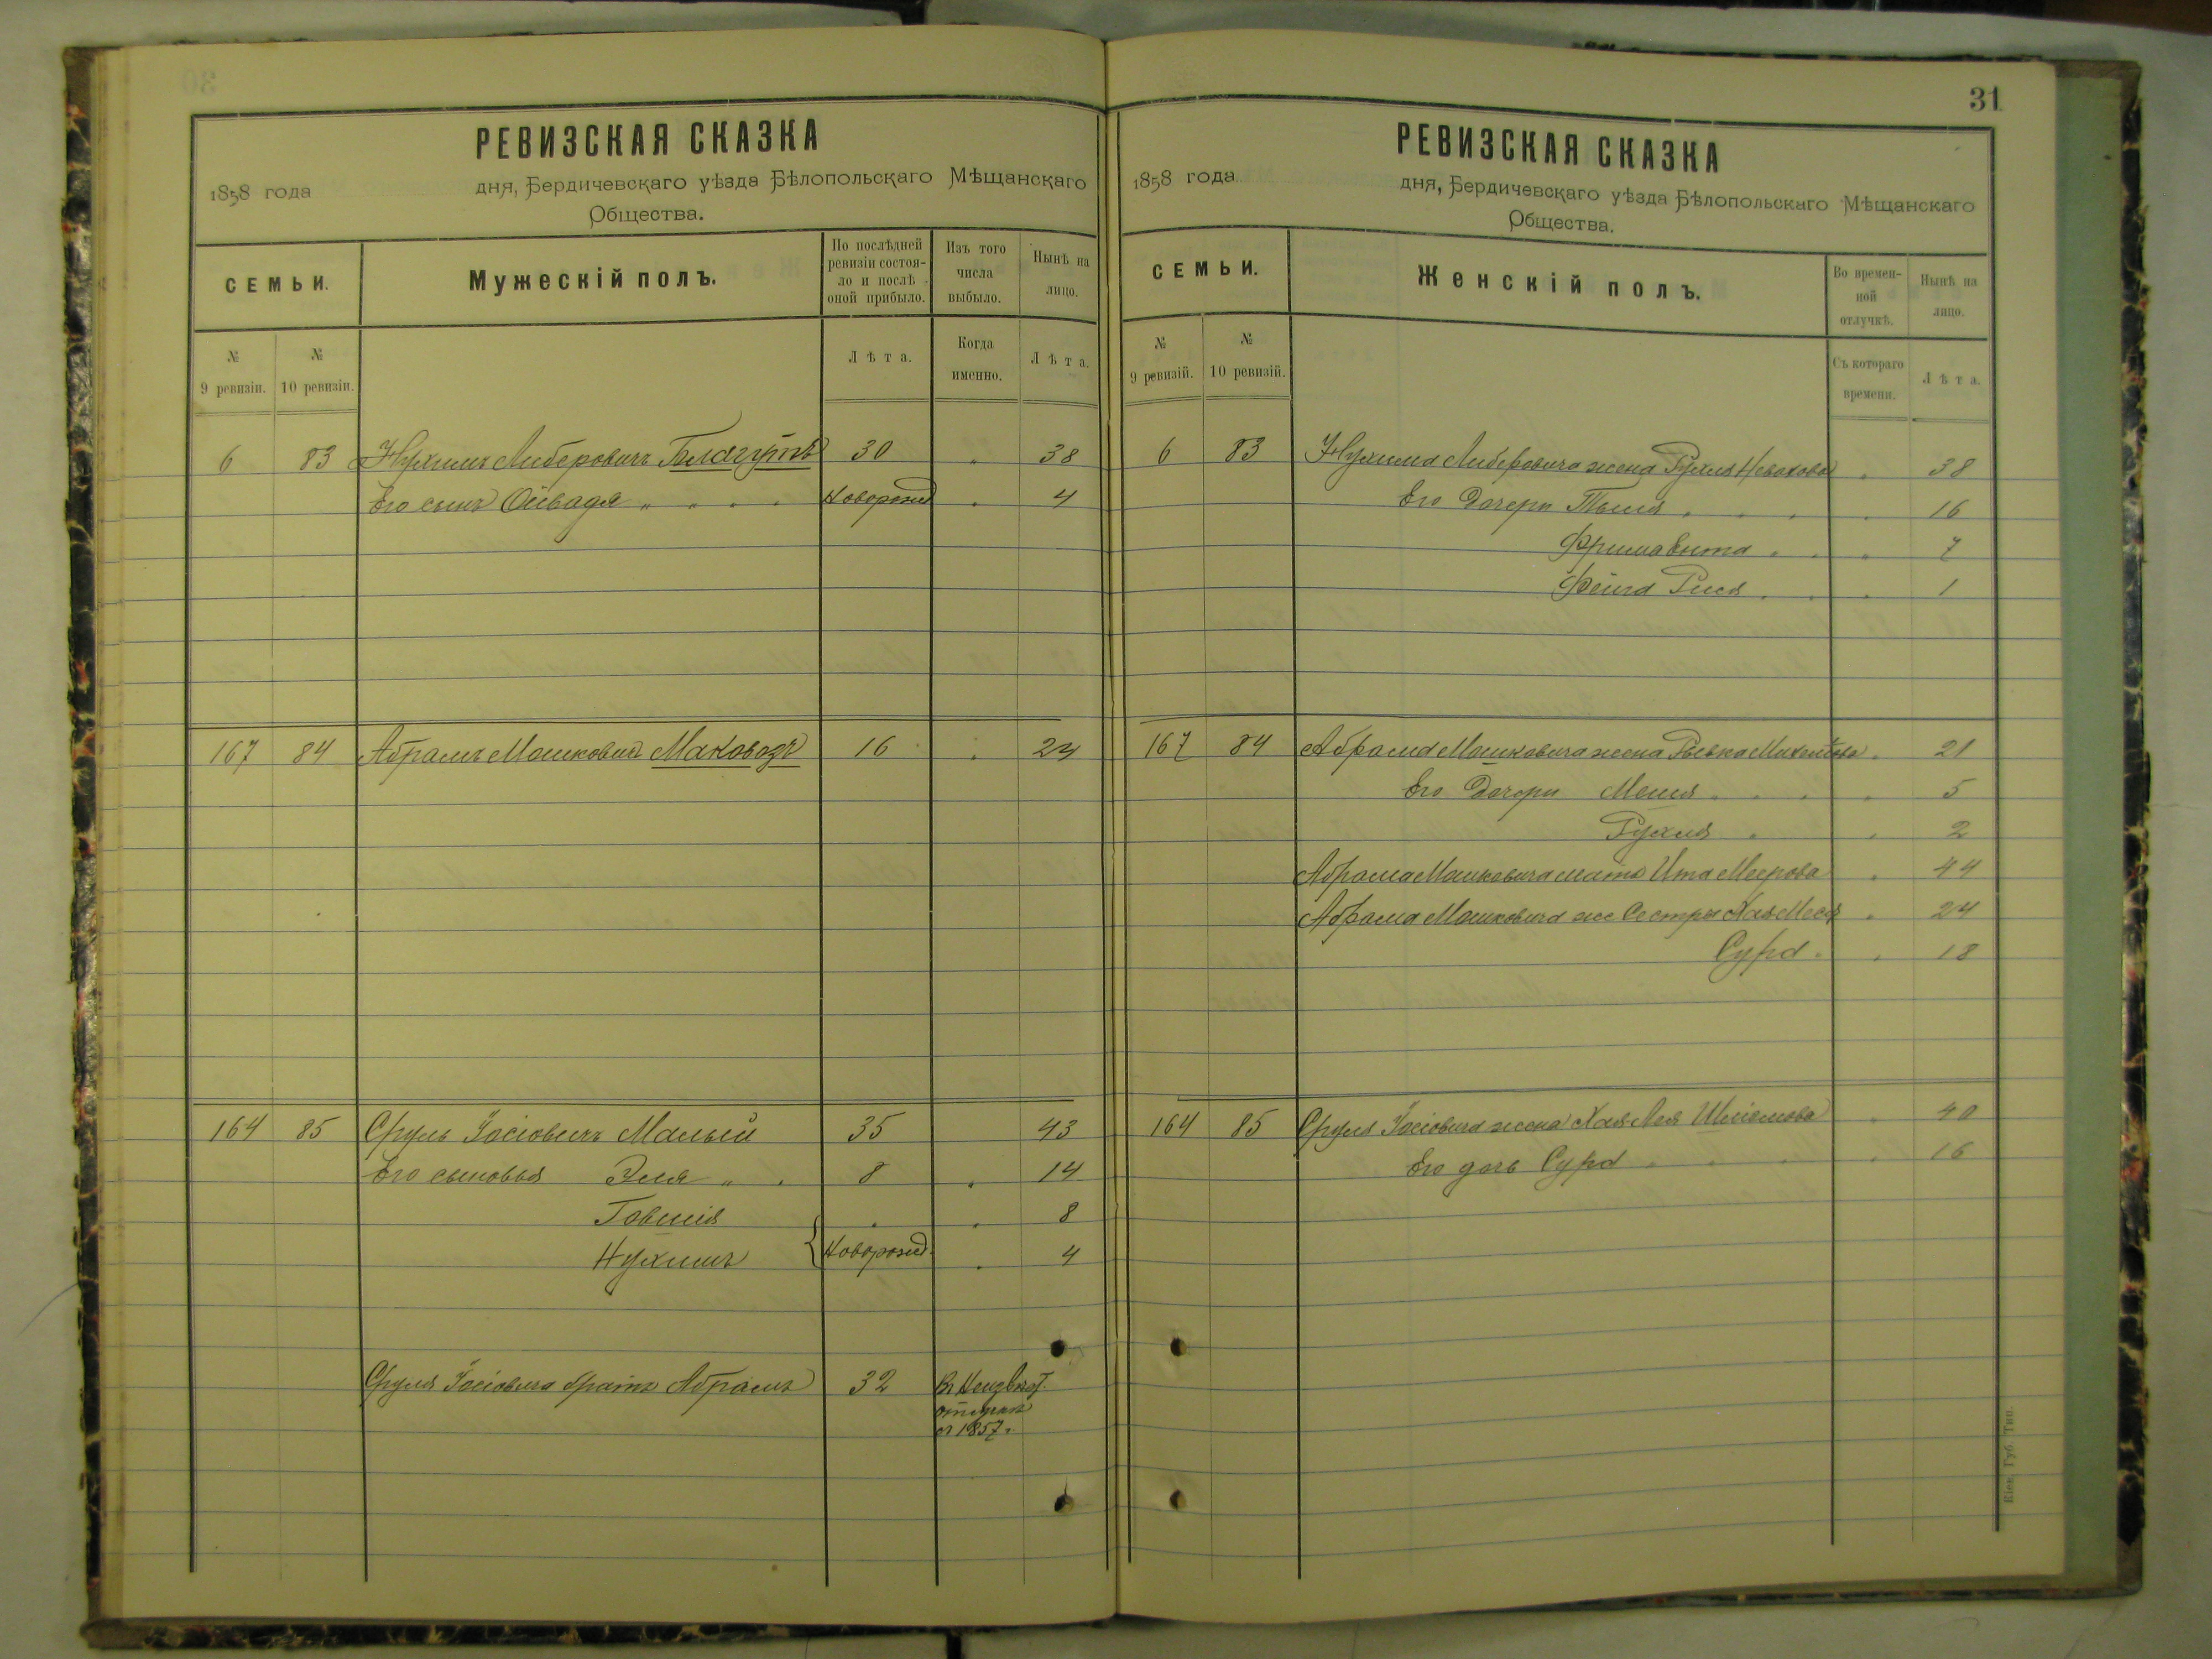 РЕВИЗСКАЯ СКАЗКА
1858 года дня, Бердичевскаго уѣзда Бѣлопольскаго Мѣщанскаго
Общества.
СЕМЬИ. Мужескій полъ. По послѣдней ревизіи состояло и послѣ оной прибыло. Изъ того числа выбыло. Нынѣ на лицо.
№ 9 ревизіи. № 10 ревизіи. Лѣта. Когда именно. Лѣта.
6 83 Нухимъ Либеровичъ 30 „ 38
Его сынъ Овадя „ „ „ „ Новорожд „ 4
167 84 Абрамъ Мошковичъ Маковозъ 16 „ 24
164 85 Сруль Іосіовичъ Малый 35 43
Его сыновья Эля „ „ 8 „ 14
Говшія „ „ 8
Нухимъ { Новорожд. „ 4
Сруля Іосіовича братъ Абрамъ 32 Въ Неизвѣст.
отлучкѣ
съ 1857 г.
31
РЕВИЗСКАЯ СКАЗКА
1858 года дня, Бердичевскаго уѣзда Бѣлопольскаго Мѣщанскаго
Общества.
СЕМЬИ. Женскій полъ. Во временной отлучкѣ. Нынѣ на лицо.
№ 9 ревизій. № 10 ревизій. Съ котораго времени. Лѣта.
6 83 Нухима Либеровича жена Рухля „ 38
Его Дочери „ „ „ „ 16
Фрима Бита „ „ „ 7
Фейга Рися „ „ „ 1
167 84 Абрама Мошковича жена „ 21
Его Дочери „ „ „ „ 5
Рухля „ „ 2
Абрама Мошковича мать Ита Меерова „ 44
Абрама Мошковича же Сестры Хая Меся „ 24
Сура „ „ 18
164 85 Сруля Іосіовича жена Хая-Лея Шліомова „ 40
Его дочь Сура „ „ „ „ 16
Кіев. Губ. Тип.